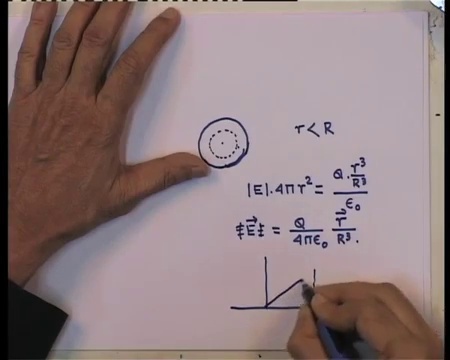 r < R
|E|.4πr² = Q.r³/R³ / ε₀
E⃗ = Q/4πε₀ r⃗/R³.